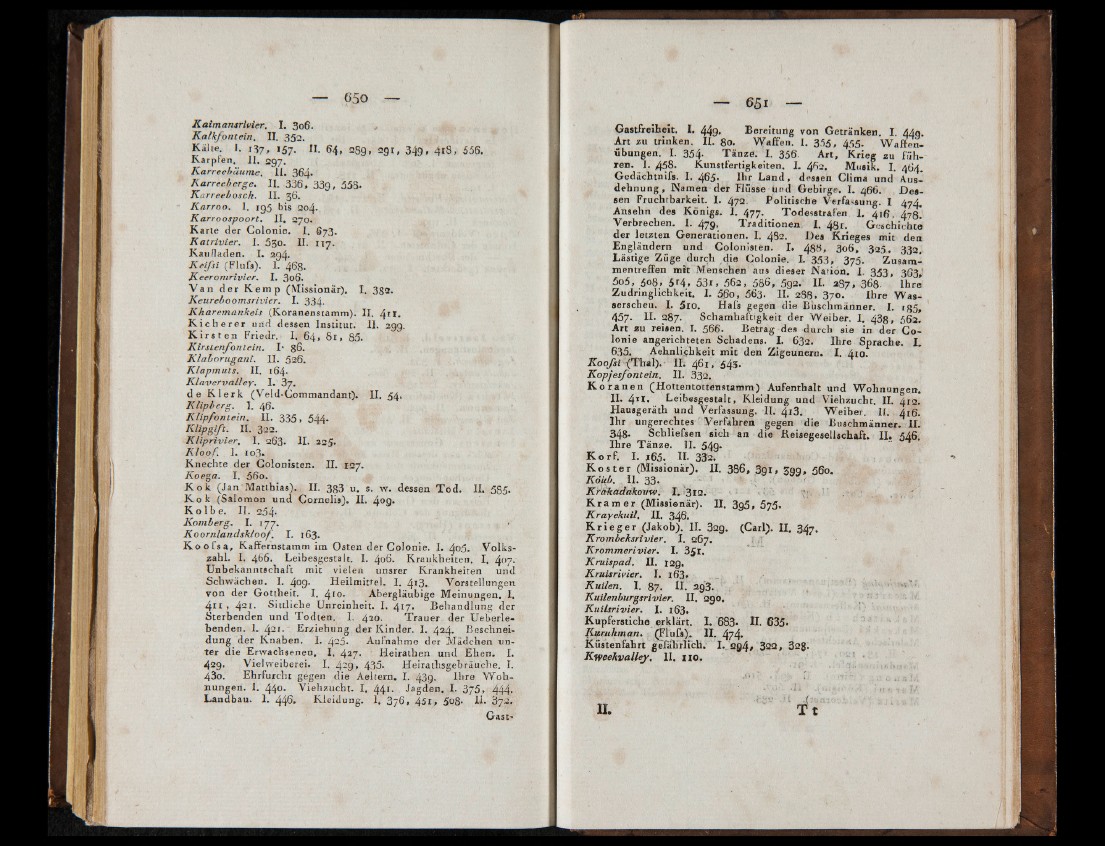 — 650 —
Kaimansrivier. I. 306.
Kalkfontein. II. 352.
Kälte. I. 137, 157. II. 64, 289, 291, 349, 418, 556.
Karpfen. II. 297.
Karreebäume. II. 364.
Karreeberge. II. 336, 339, 558.
Karreebosch. II. 36.
Karroo. I. 195 bis 204.
Karroospoort. II. 270.
Karte der Colonie. I. 673.
Katrivier. I. 530. II. 117.
Kaufladen. I. 294.
Keissi (Fluſs). I. 468.
Keeromrivier. I. 306.
Van der Kemp (Missionär). I. 382.
Keureboomsrivier. I. 334.
Kharemankeis (Koranenstamm). II. 411.
Kicherer und dessen Institut. II. 299.
Kirsten Friedr. I. 64, 81, 85.
Kirstenfontein. I. 86.
Klaborugani. II. 526.
Klapmuts. II. 164.
Klavervalley. I. 37.
de Klerk (Veld-Commandant). II. 54.
Klipberg. I. 46.
Klipfontein. II. 335, 544.
Klipgift. II. 322.
Kliprivier. I. 263. II. 225.
Kloof. I. 103.
Knechte der Colonisten. II. 127.
Koega. I. 560.
Kok (Jan Matthias). II. 383 u. s. w. dessen Tod. II. 585.
Kok (Salomon und Cornelis). II. 409.
Kolbe. II. 254.
Komberg. I. 177.
Koornlandskloof. I. 163.
Koossa, Kaffernstamm im Osten der Colonie. I. 405. Volks-
zahl. I. 466. Leibesgestalt. I. 406. Krankheiten. I. 407.
Unbekanntschaft mit vielen unsrer Krankheiten und
Schwächen. I. 409. Heilmittel. I. 413. Vorstellungen
von der Gottheit. I. 410. Abergläubige Meinungen. I.
411, 421. Sittliche Unreinheit. I. 417. Behandlung der
Sterbenden und Todten. I. 420. Trauer der Ueberle-
benden. I. 421. Erziehung der Kinder. I. 424. Beschnei-
dung der Knaben. I. 425. Aufnahme der Mädchen un-
ter die Erwachsenen. I. 427. Heirathen und Ehen. I.
429. Vielweiberei. I. 429, 435. Heirathsgebräuche. I.
430. Ehrfurcht gegen die Aeltern. I. 439. Ihre Woh-
nungen. I. 440. Viehzucht. I. 441. Jagden. I. 375, 444.
Landbau. I. 446. Kleidung. I. 376, 451, 508. II. 372.
Gast-
— 651 —
Gastfreiheit. I. 449. Bereitung von Getränken. I. 449.
Art zu trinken. II. 80. Waffen. I. 355, 455. Waffen-
übungen. I. 354. Tänze. I. 356. Art, Krieg zu füh-
ren. I. 458. Kunstfertigkeiten. I. 462. Musik. I. 464.
Gedächtniſs. I. 465. Ihr Land, dessen Clima und Aus-
dehnung, Namen der Flüsse und Gebirge. I. 466. Des-
sen Fruchtbarkeit. I. 472. Politische Verfassung. I. 474.
Ansehn des Königs. I. 477. Todesstrafen. I. 416, 478.
Verbrechen. I. 479. Traditionen. I. 481. Geschichte
der letzten Generationen. I. 482. Des Krieges mit den
Engländern und Colonisten. I. 488, 306, 325, 332.
Lästige Züge durch die Colonie. I. 353, 375. Zusam-
mentreffen mit Menschen aus dieser Nation. I. 353, 363,
505, 508, 514, 531, 562, 586, 592. II. 287, 368. Ihre
Zudringlichkeit. I. 560, 563. II. 288, 370. Ihre Was-
serscheu. I. 510. Haſs gegen die Buschmänner. I. 185,
457. II. 287. Schamhaftigkeit der Weiber. I. 438, 562.
Art zu reisen. I. 566. Betrag des durch sie in der Co-
lonie angerichteten Schadens. I. 632. Ihre Sprache. I.
635. Aehnlichkeit mit den Zigeunern. I. 410.
Koossi (Thal). II. 461, 545.
Kopjesfontein. II. 332.
Koranen (Hottentottenstamm) Aufenthalt und Wohnungen.
II. 411. Leibesgestalt, Kleidung und Viehzucht. II. 412.
Hausgeräth und Verfassung. II. 413. Weiber. II. 416.
Ihr ungerechtes Verfahren gegen die Buschmänner. II.
348. Schlieſsen sich an die Reisegesellschaft. II. 546.
Ihre Tänze. II. 549.
Korf. I. 165. II. 332.
Koster (Missionär). II. 386, 391, 399, 560.
Kóub. II. 33.
Krakadakouw. I. 312.
Kramer (Missionär). II. 395, 575.
Krayekuil. II. 346.
Krieger (Jakob). II. 329. (Carl). II. 347.
Krombeksrivier. I. 267.
Krommerivier. I. 351.
Kruispad. II. 129.
Kruisrivier. I. 163.
Kuilen. I. 87. II. 293.
Kuilenburgsrivier. II. 290.
Kuilsrivier. I. 163.
Kupferstiche erklärt. I. 683. II. 635.
Kuruhman. (Fluſs). II. 474.
Küstenfahrt gefährlich. I. 294, 322, 328.
Kweekvalley. II. 110.
II. Tt